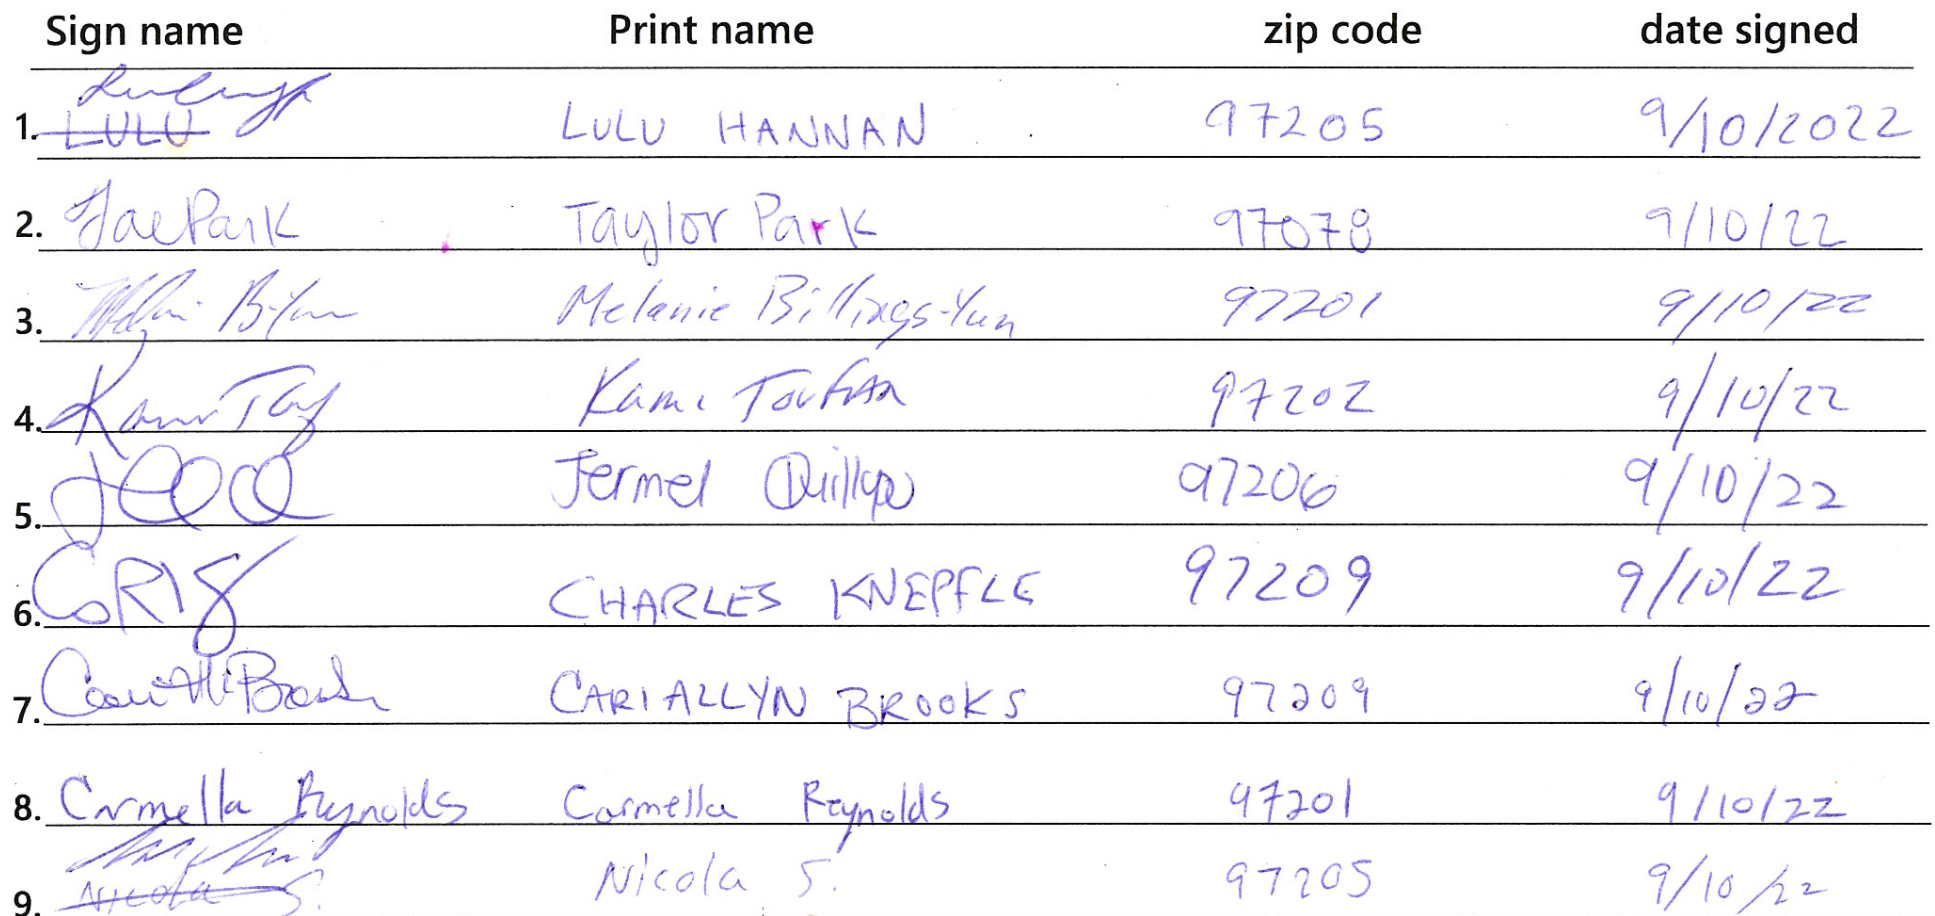 Sign name Print name zip code date signed
1. LULU LULU HANNAN 97205 9/10/2022
2. TaePark Taylor Park 97078 9/10/22
3. Melanie Billings-Yun 97201 9/10/22
4. Kami Toufan 97202 9/10/22
5. Jermel 97206 9/10/22
6. CHARLES KNEPFLE 97209 9/10/22
7. CARIALLYN BROOKS 97209 9/10/22
8. Carmella Reynolds Carmella Reynolds 97201 9/10/22
9. Nicola S. Nicola S. 97205 9/10/22